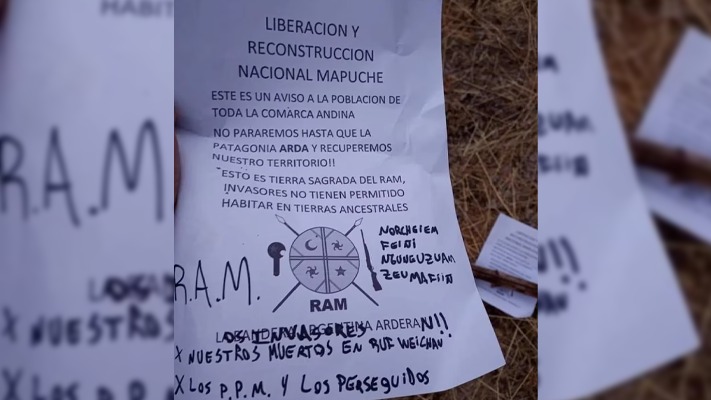 LIBERACION Y
RECONSTRUCCION
NACIONAL MAPUCHE
ESTE ES UN AVISO A LA POBLACION DE
TODA LA COMARCA ANDINA
NO PARAREMOS HASTA QUE LA
PATAGONIA ARDA Y RECUPEREMOS
NUESTRO TERRITORIO!!
ESTO ES TIERRA SAGRADA DEL RAM,
INVASORES NO TIENEN PERMITIDO
HABITAR EN TIERRAS ANCESTRALES
NORCHEIEM
FEIDI
NGUNGUZUAM
R.A.M.
RAM
LOS INVASORES ARGENTINA ARDERAN!!
X NUESTROS MUERTOS EN WEICHAN!!
X LOS P.P.M. Y LOS PERSEGUIDOS